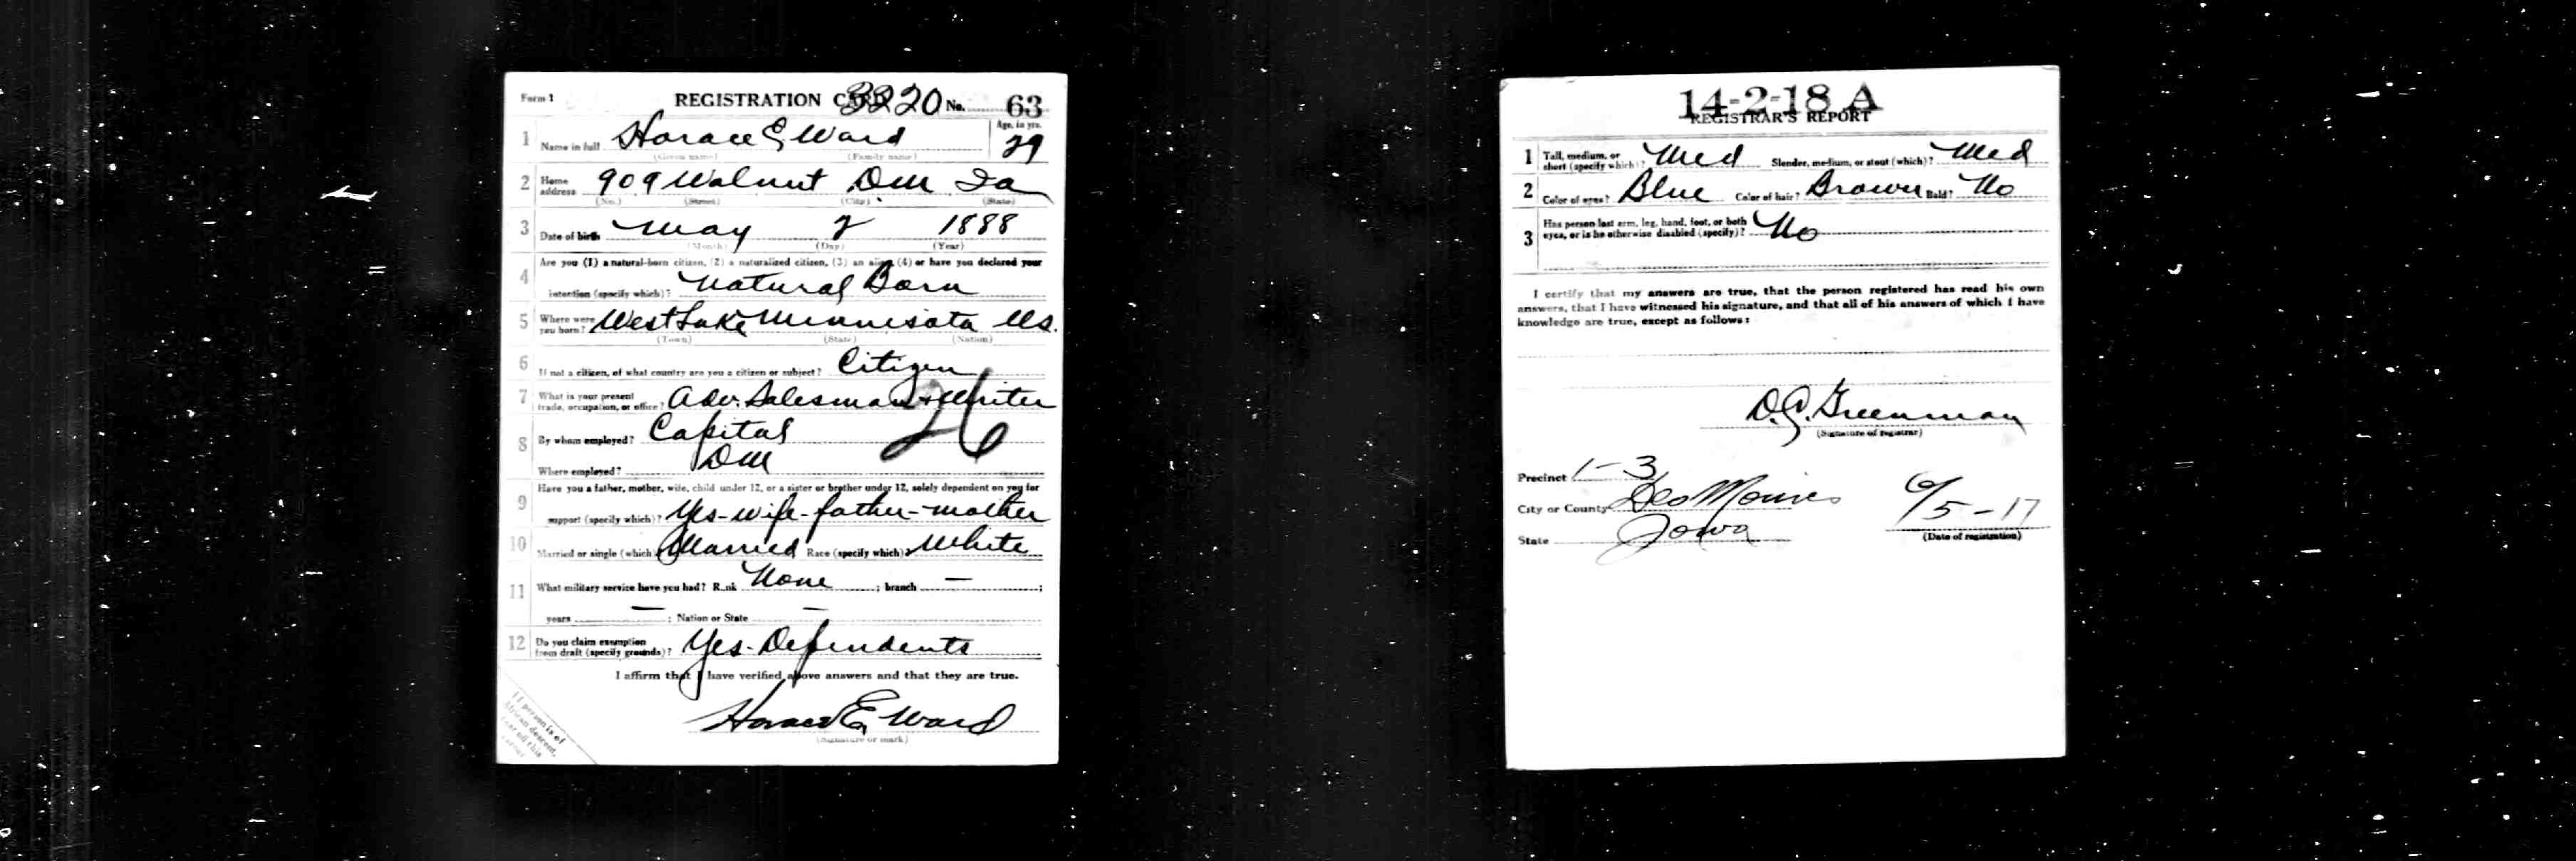 Form 1 REGISTRATION CARD 3320 No. 63
1 Name in full Horace E Ward Age, in yrs. 29
(Given name) (Family name)
2 Home address 909 Walnut DM Ia
(No.) (Street) (City) (State)
3 Date of birth May 2 1888
(Month) (Day) (Year)
4 Are you (1) a natural-born citizen, (2) a naturalized citizen, (3) an alien, (4) or have you declared your
intention (specify which)? Natural Born
5 Where were you born? West Lake Minnesota Us.
(Town) (State) (Nation)
6 If not a citizen, of what country are you a citizen or subject? Citizen
7 What is your present trade, occupation, or office? Adv. Salesman + Writer
26
8 By whom employed? Capital
Where employed? DM
9 Have you a father, mother, wife, child under 12, or a sister or brother under 12, solely dependent on you for
support (specify which)? Yes-wife-father-mother
10 Married or single (which)? Married Race (specify which)? White
11 What military service have you had? Rank None ; branch — ;
years — ; Nation or State —
12 Do you claim exemption from draft (specify grounds)? Yes-Dependents
I affirm that I have verified above answers and that they are true.
Horace E. Ward
(Signature or mark)
If person is of
African descent,
tear off this
corner
14-2-18 A
REGISTRAR'S REPORT
1 Tall, medium, or short (specify which)? Med Slender, medium, or stout (which)? Med
2 Color of eyes? Blue Color of hair? Brown Bald? No
3 Has person lost arm, leg, hand, foot, or both
eyes, or is he otherwise disabled (specify)? No
I certify that my answers are true, that the person registered has read his own
answers, that I have witnessed his signature, and that all of his answers of which I have
knowledge are true, except as follows:
D.G. Greenman
(Signature of registrar)
Precinct 1-3
City or County Des Moines
State Iowa
6/5-17
(Date of registration)